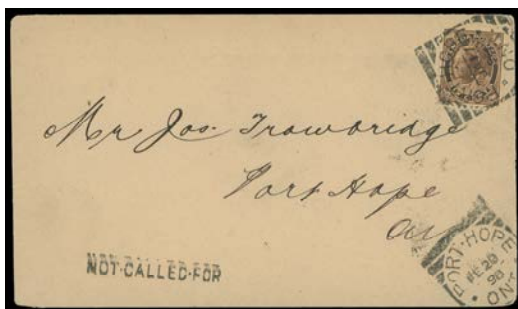 PORT HOPE
ONT
Mr Jos. Trowbridge
Port Hope
Ont
NOT CALLED FOR
PORT·HOPE
FE 20
98
ONT